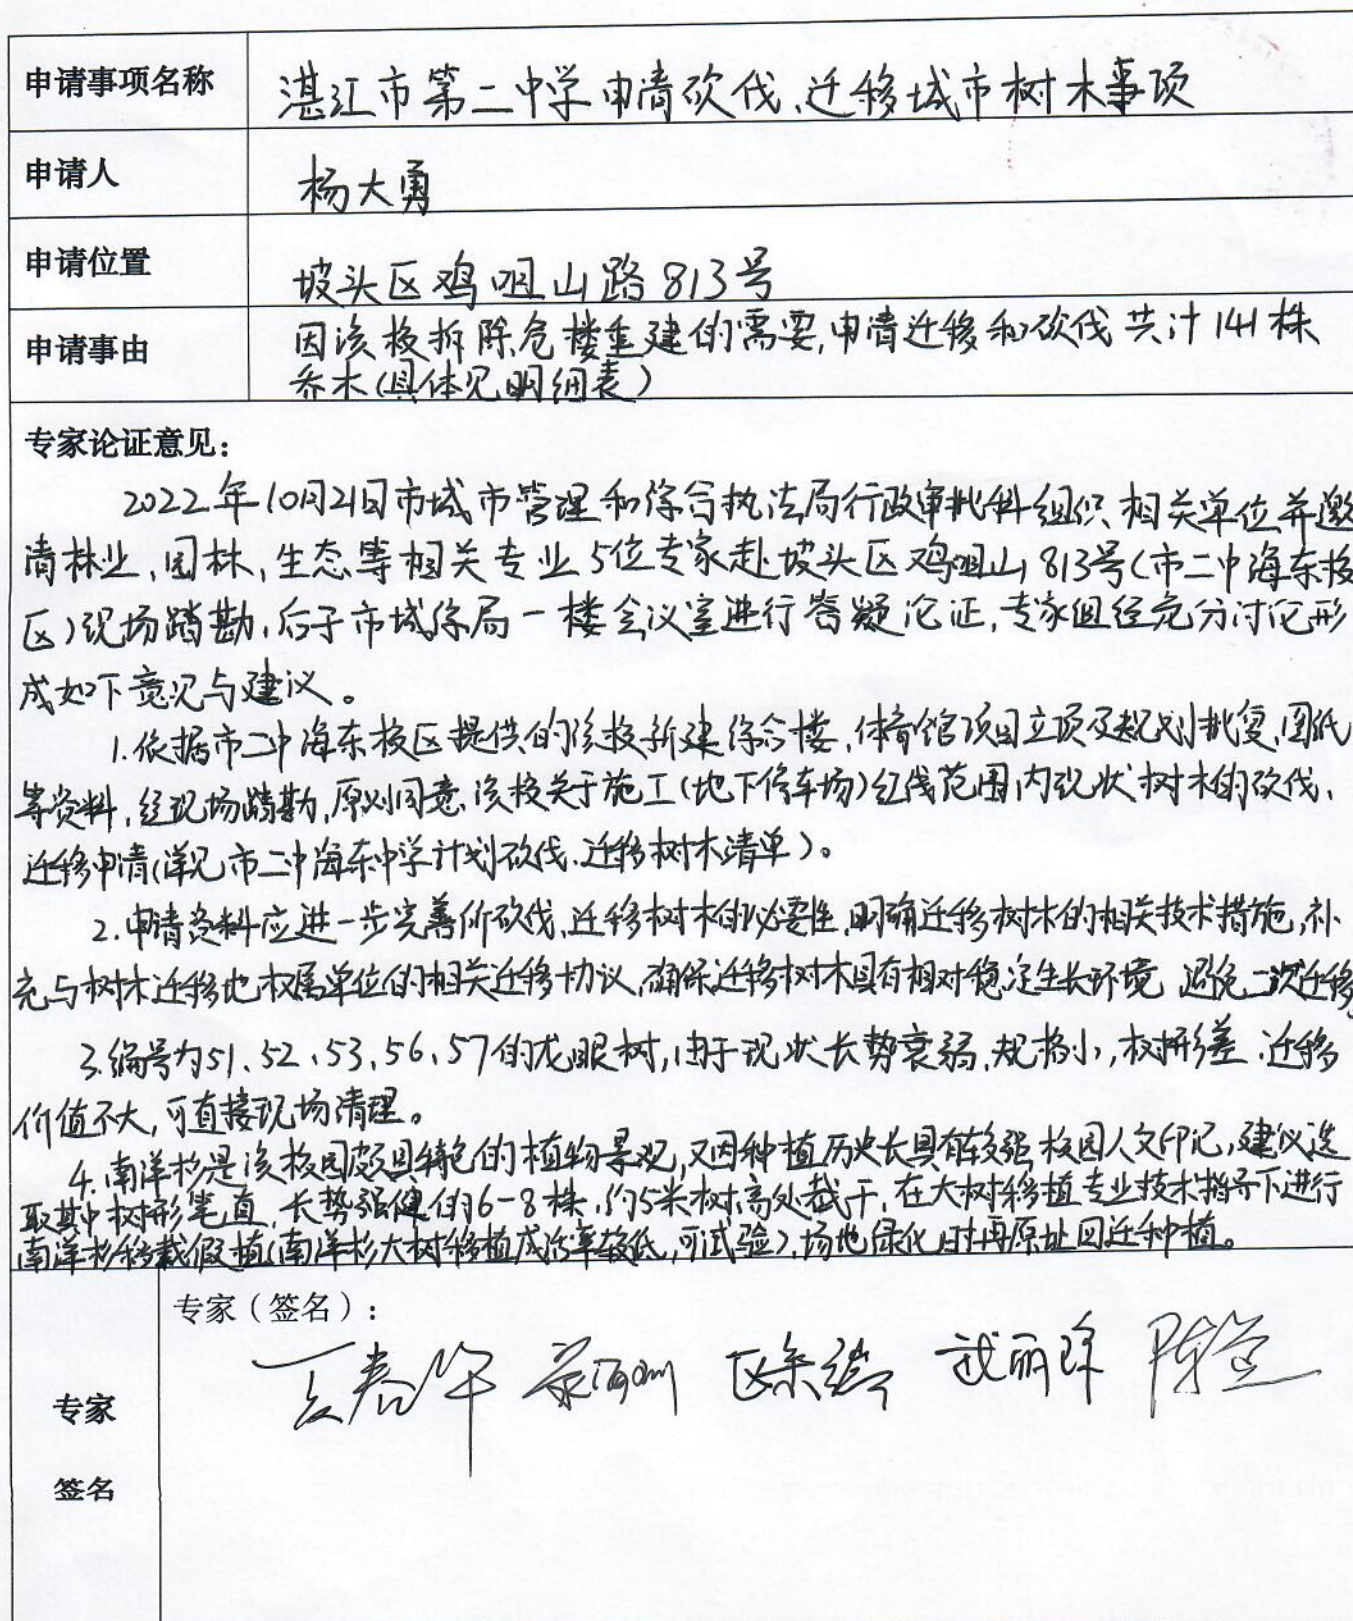 申请事项名称
湛江市第二中学申请砍伐、迁移城市树木事项
申请人
杨大勇
申请位置
坡头区鸡咀山路813号
申请事由
因该校拆除危楼重建的需要,申请迁移和砍伐共计141株
乔木(具体见明细表)
专家论证意见:
2022年10月21日市城市管理和综合执法局行政审批科组织相关单位并邀
请林业、园林、生态等相关专业5位专家赴坡头区鸡咀山813号(市二中海东校
区)现场踏勘,后于市城综局一楼会议室进行答疑论证,专家组经充分讨论形
成如下意见与建议。
1.依据市二中海东校区提供的该校新建综合楼、体育馆项目立项及规划批复、图纸
等资料,经现场踏勘,原则同意该校关于施工(地下停车场)红线范围内现状树木的砍伐、
迁移申请(详见市二中海东中学计划砍伐、迁移树木清单)。
2.申请资料应进一步完善所砍伐、迁移树木的必要性,明确迁移树木的相关技术措施,补
充与树木迁移地权属单位的相关迁移协议,确保迁移树木具有相对稳定生长环境,避免二次迁移。
3.编号为51、52、53、56、57的龙眼树,由于现状长势衰弱、规格小,树形差、迁移
价值不大,可直接现场清理。
4.南洋杉是该校园颇具特色的植物景观,又因种植历史长具有较强校园人文印记,建议选
取其中树形笔直、长势强健的6-8株,约5米树高处截干,在大树移植专业技术指导下进行
南洋杉移栽假植(南洋杉大树移植成活率较低,可试验),场地绿化时再原址回迁种植。
专家
签名
专家(签名):